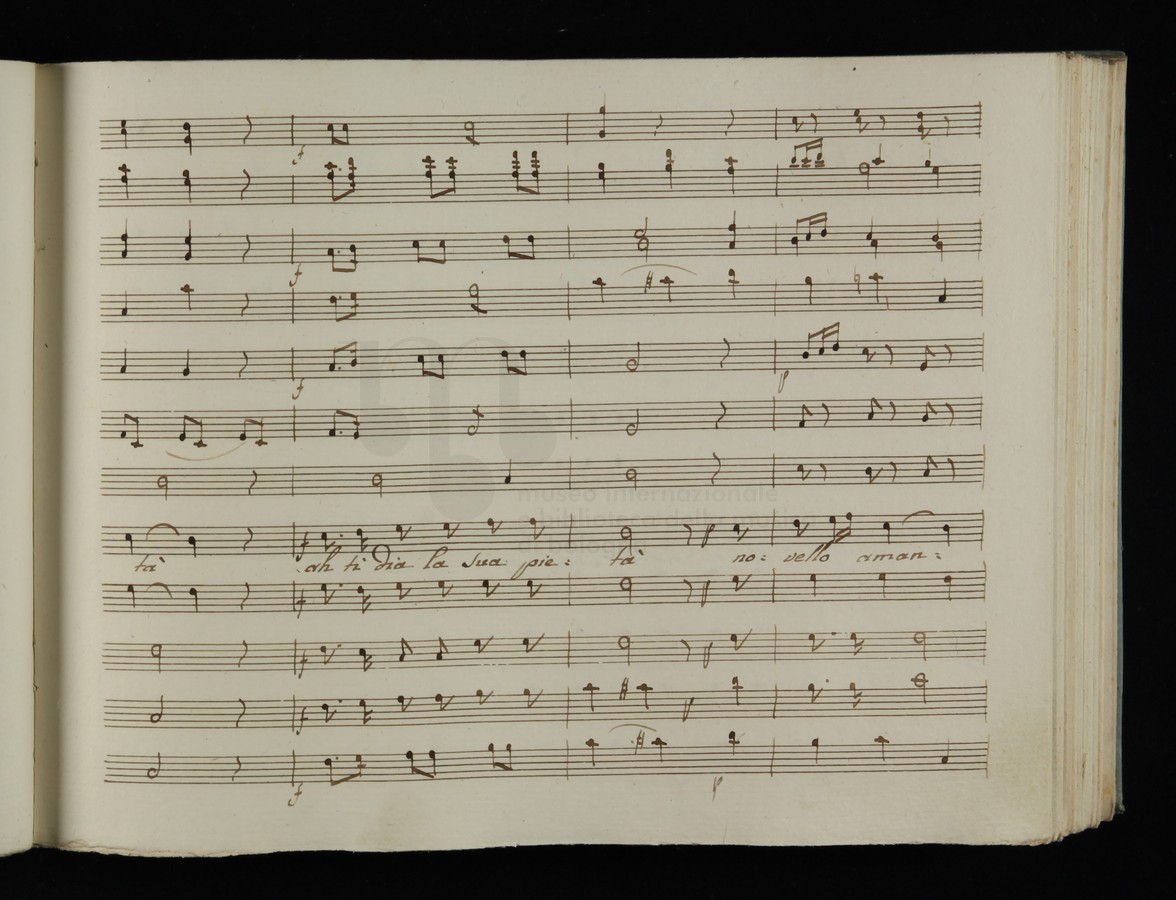 f
f
f
p
museo internazionale
e biblioteca della musica
di bologna
tà ah ti dia la sua pie: tà no: vello aman:
f p
f p
f p
f p
f p